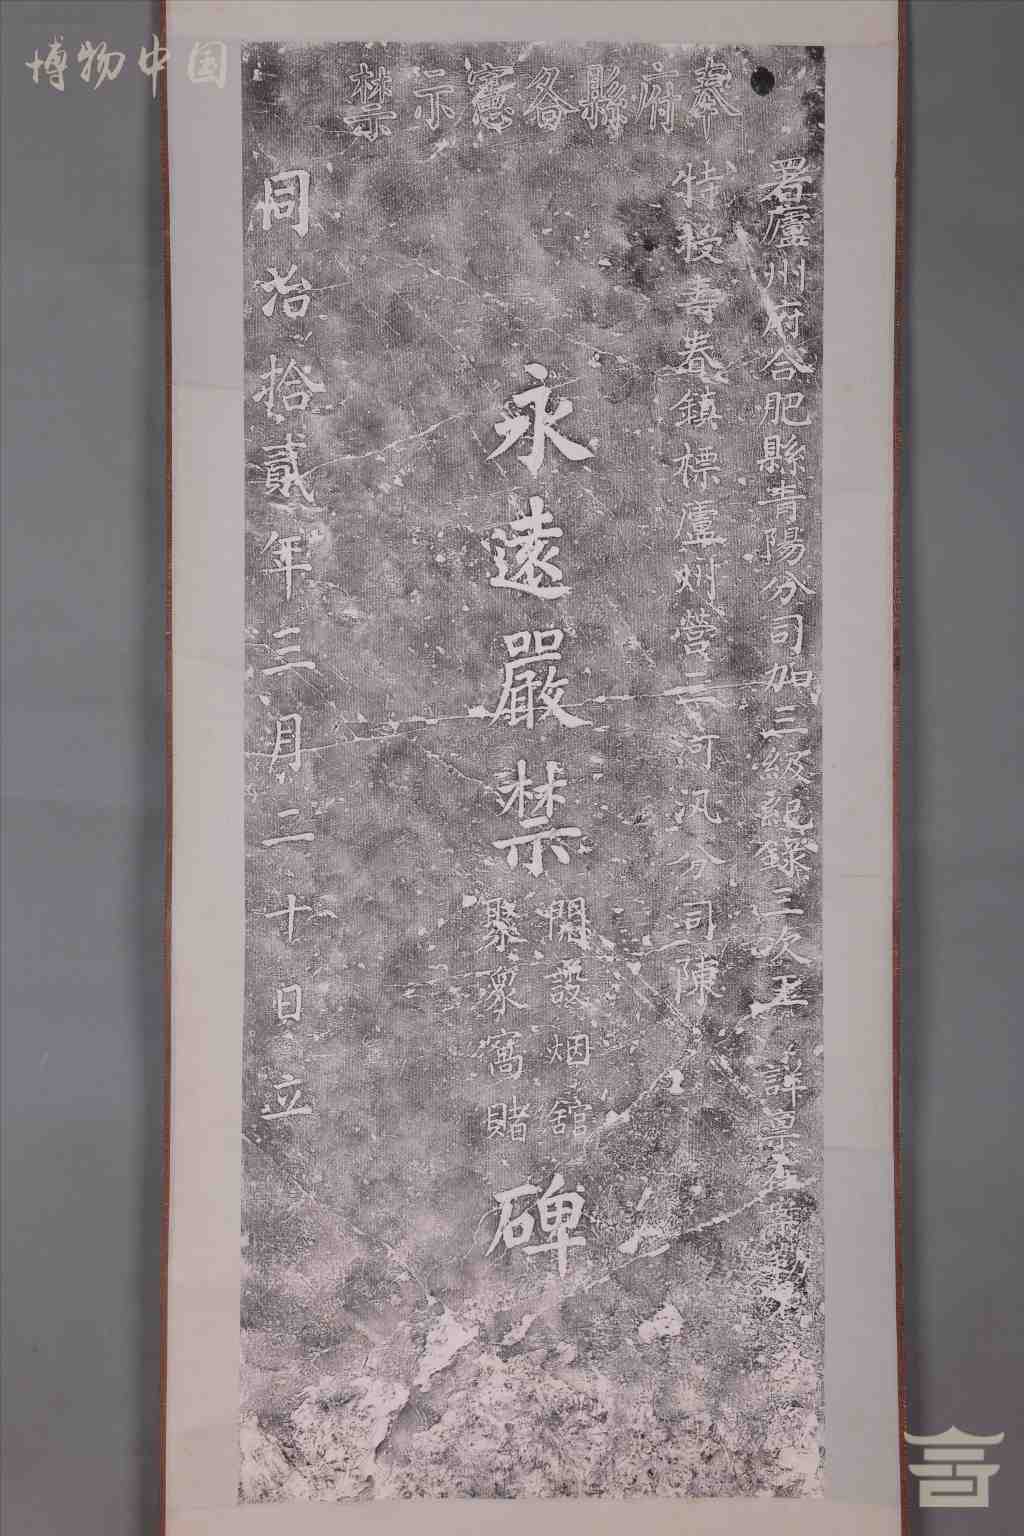 博物中国
奉府縣各憲示禁
署廬州府合肥縣青陽分司加三級紀錄三次王 詳稟在
特授壽春鎮標廬州營三河汛分司陳
永遠嚴禁
開設烟館
聚眾窩賭
碑
同治拾貳年三月二十日立